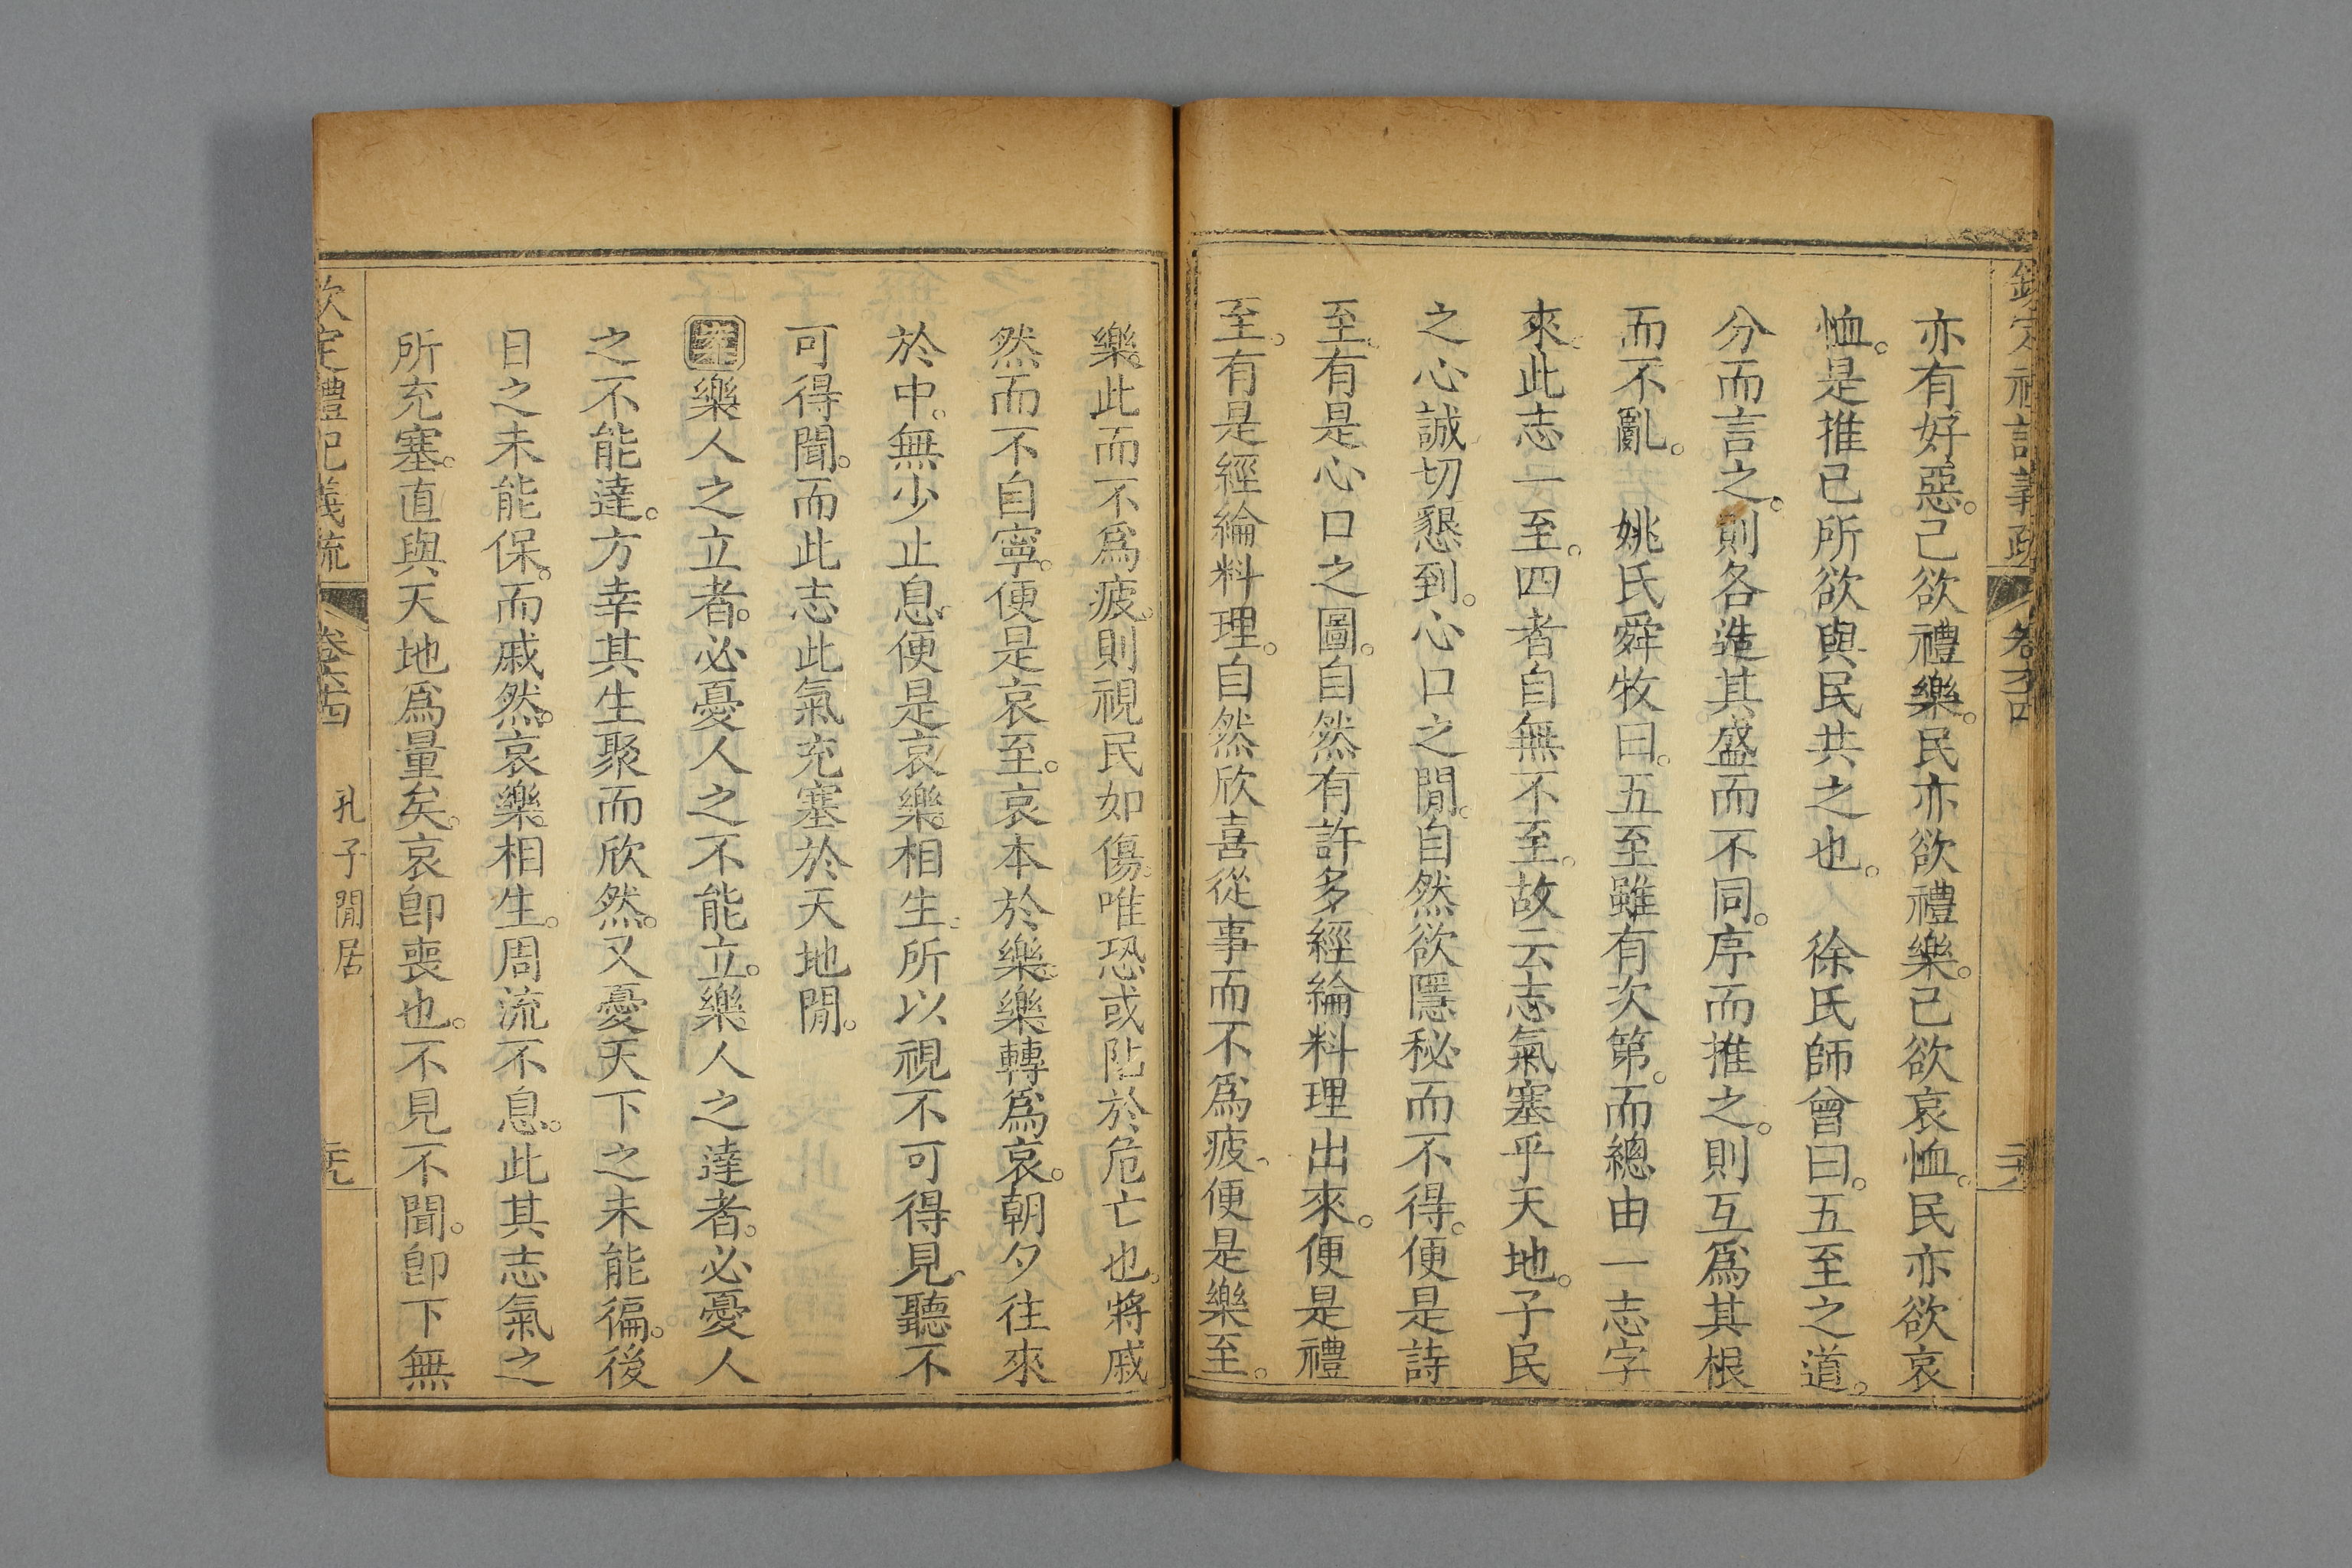 亦有好惡。己欲禮樂。民亦欲禮樂。己欲哀恤。民亦欲哀
恤。是推己所欲與民共之也。 徐氏師曾曰。五至之道。
分而言之。則各造其盛而不同。序而推之。則互爲其根
而不亂。 姚氏舜牧曰。五至雖有次第。而總由一志字
來。此志一至。四者自無不至。故云志氣塞乎天地。子民
之心誠切懇到。心口之閒。自然欲隱秘而不得。便是詩
至。有是心口之圖。自然有許多經綸料理出來。便是禮
至。有是經綸料理。自然欣喜從事而不爲疲。便是樂至。
樂。此而不爲疲。則視民如傷。唯恐或阽於危亡也。將戚
然而不自寧。便是哀至。哀本於樂。樂轉爲哀。朝夕往來
於中。無少止息。便是哀樂。相生。所以視不可得見。聽不
可得聞。而此志此氣充塞於天地閒。
案樂人之立者。必憂人之不能立。樂人之達者。必憂人
之不能達。方幸其生聚而欣然。又憂天下之未能徧。後
日之未能保。而戚然。哀樂。相生。周流不息。此其志氣之
所充塞。直與天地爲量矣。哀卽喪也。不見不聞。卽下無
欽定禮記義疏 卷六十四 孔子閒居 二九